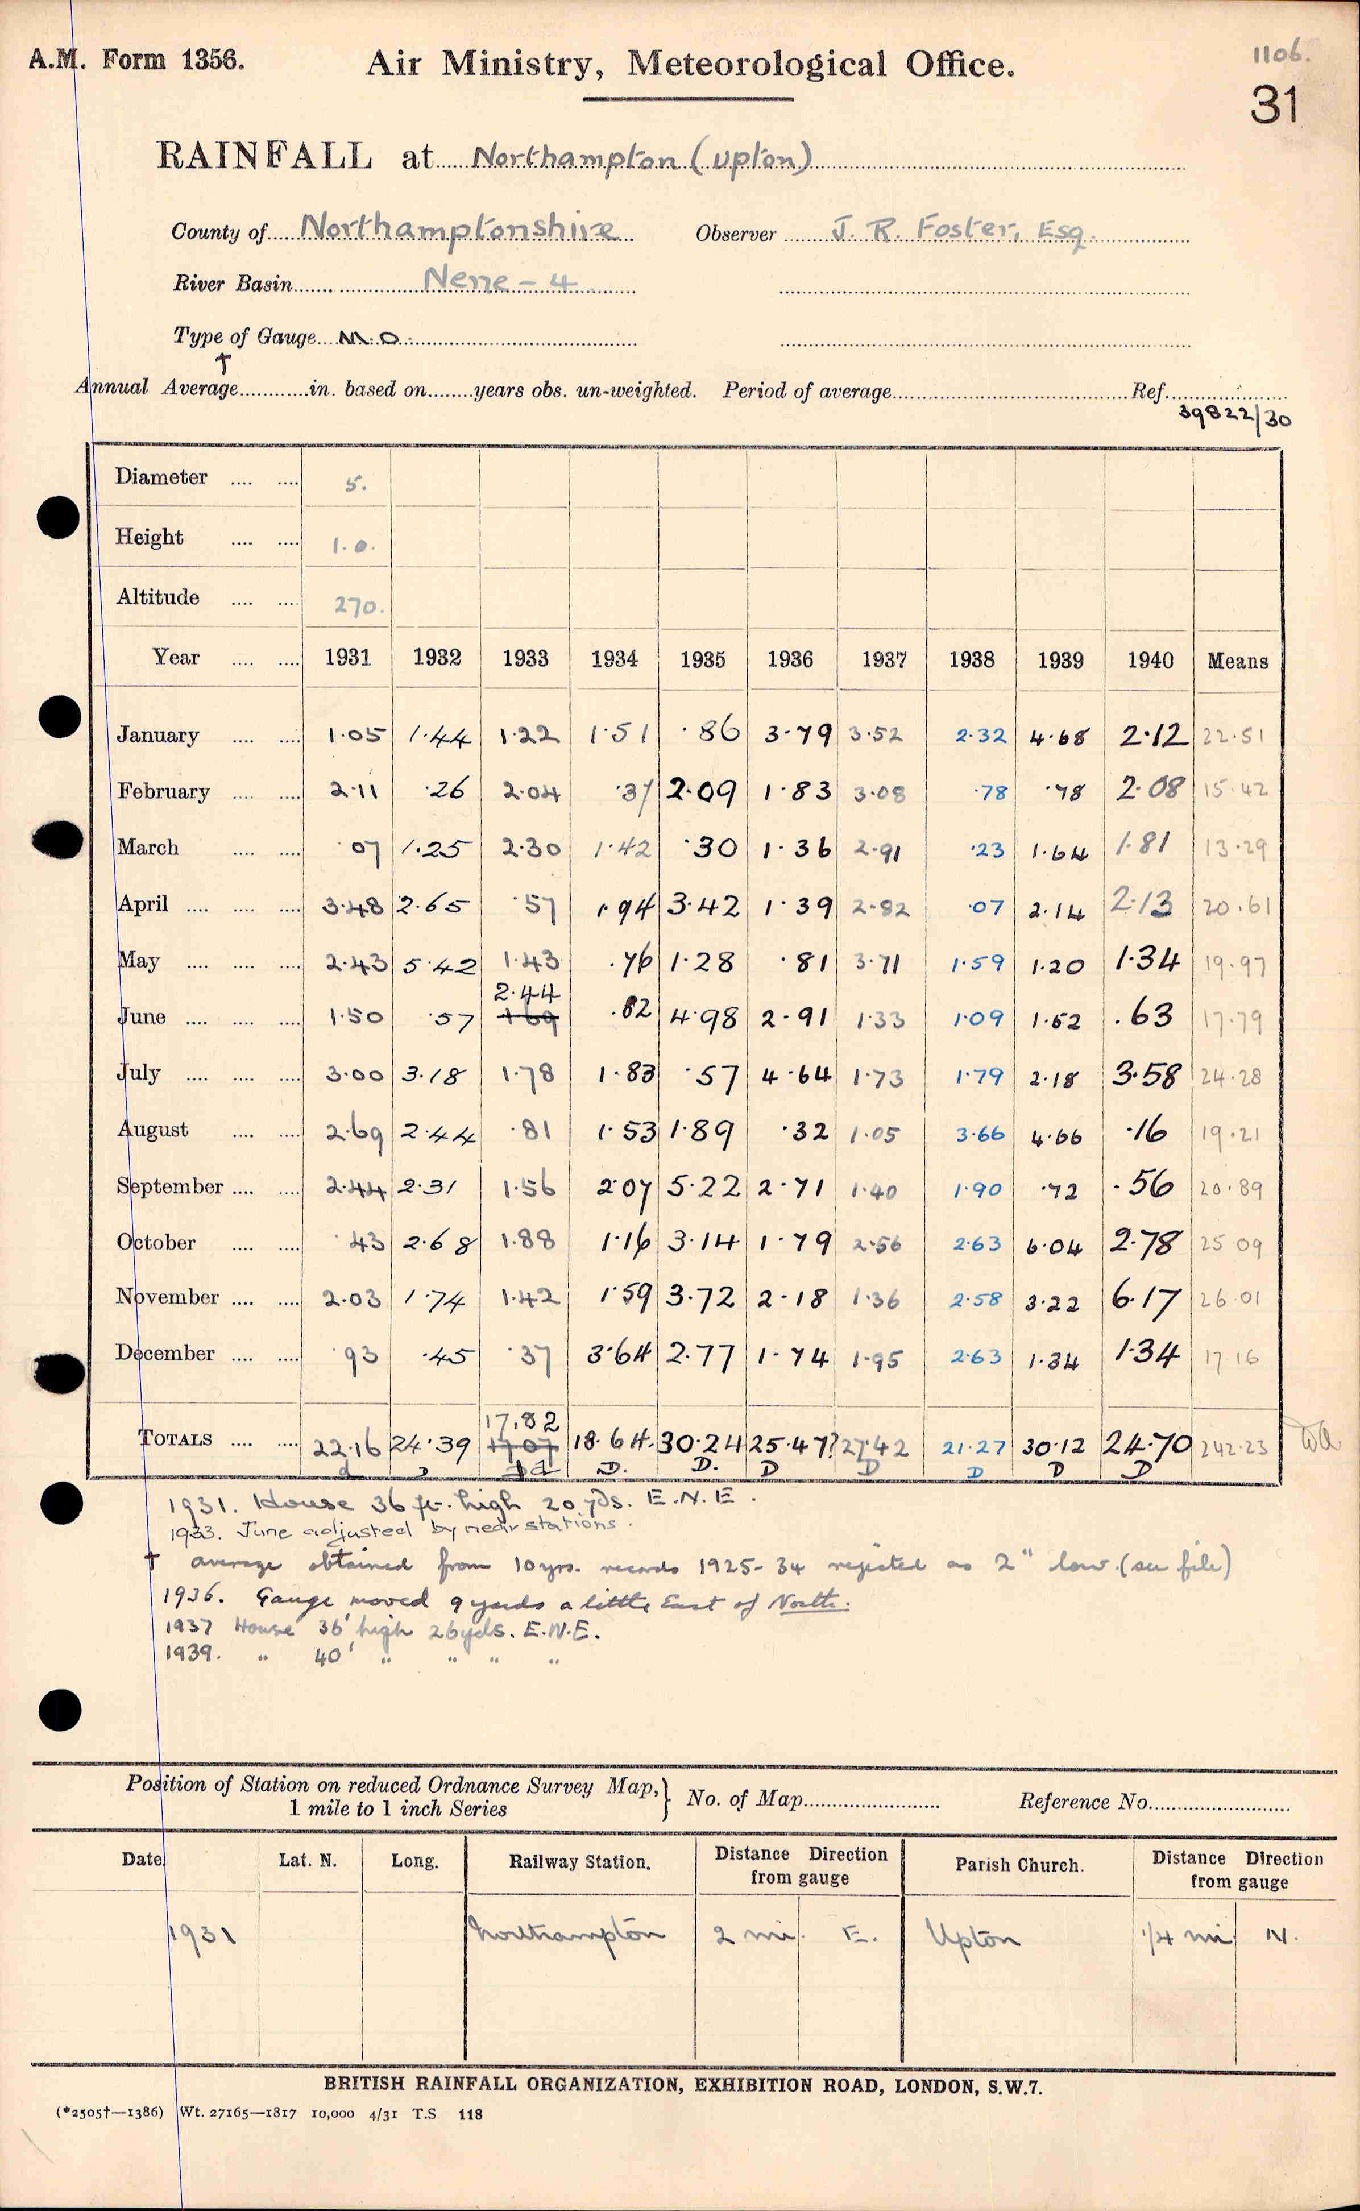 A.M. Form 1356. Air Ministry, Meteorological Office. 1106.
31
RAINFALL at Northampton (Upton)
County of Northamptonshire Observer J. R. Foster, Esq.
River Basin Nene - 4
Type of Gauge M.O.
†
Annual Average in. based on years obs. un-weighted. Period of average Ref.
39822/30
Diameter 5.
Height 1.0.
Altitude 270.
Year 1931 1932 1933 1934 1935 1936 1937 1938 1939 1940 Means
January 1.05 1.44 1.22 1.51 .86 3.79 3.52 2.32 4.68 2.12 22.51
February 2.11 .26 2.04 .37 2.09 1.83 3.08 .78 .78 2.08 15.42
March .07 1.25 2.30 1.42 .30 1.36 2.91 .23 1.64 1.81 13.29
April 3.48 2.65 .57 1.94 3.42 1.39 2.82 .07 2.14 2.13 20.61
May 2.43 5.42 1.43 .76 1.28 .81 3.71 1.59 1.20 1.34 19.97
2.44
June 1.50 .57 1.69 .82 4.98 2.91 1.33 1.09 1.52 .63 17.79
July 3.00 3.18 1.78 1.83 .57 4.64 1.73 1.79 2.18 3.58 24.28
August 2.69 2.44 .81 1.53 1.89 .32 1.05 3.66 4.66 .16 19.21
September 2.44 2.31 1.56 2.07 5.22 2.71 1.40 1.90 .72 .56 20.89
October .43 2.68 1.88 1.16 3.14 1.79 2.56 2.63 6.04 2.78 25 09
November 2.03 1.74 1.42 1.59 3.72 2.18 1.36 2.58 3.22 6.17 26.01
December .93 .45 .37 3.64 2.77 1.74 1.95 2.63 1.34 1.34 17 16
17.82
TOTALS 22.16 24.39 17.07 18.64 30.24 25.47? 27.42 21.27 30.12 24.70 242.23
d D D D. D. D D D D D
1931. House 36 ft. high 20 yds. E.N.E.
1933. June adjusted by near stations.
† average obtained from 10 yrs. records 1925-34 rejected as 2" low. (see file)
1936. Gauge moved 9 yards a little East of North.
1937 House 36' high 26 yds. E.N.E.
1939. " 40' " " " "
Position of Station on reduced Ordnance Survey Map, } No. of Map Reference No.
1 mile to 1 inch Series
Date Lat. N. Long. Railway Station. Distance Direction from gauge Parish Church. Distance Direction from gauge
1931 Northampton 2 mi. E. Upton 1/4 mi N.
BRITISH RAINFALL ORGANIZATION, EXHIBITION ROAD, LONDON, S.W.7.
(*2505†—1386) Wt. 27165—1817 10,000 4/31 T.S 118